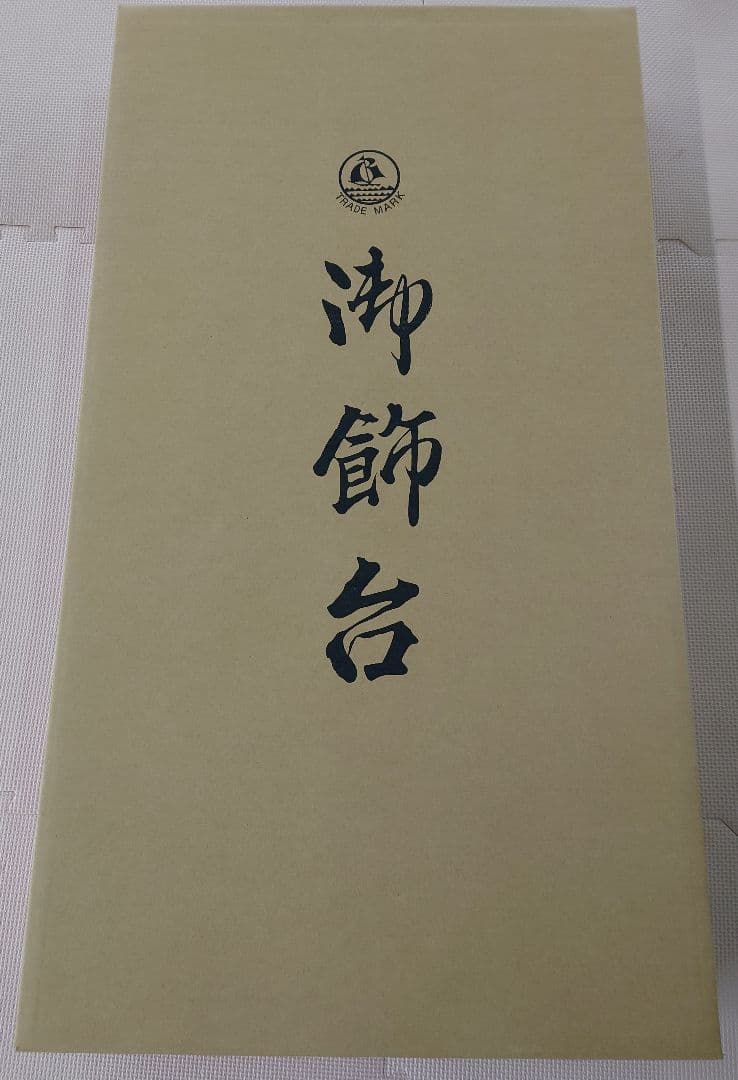 TRADE MARK
御飾台